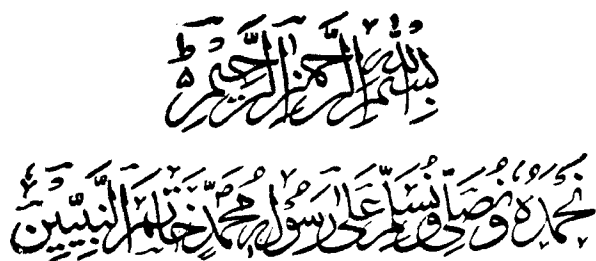 بِسْمِ اللّٰهِ الرَّحْمٰنِ الرَّحِيْمِ ۵ ط
نَحْمَدُهٗ وَنُصَلِّيْ وَنُسَلِّمُ عَلٰى رَسُوْلِهٖ مُحَمَّدٍ خَاتَمِ النَّبِيِّيْنَ